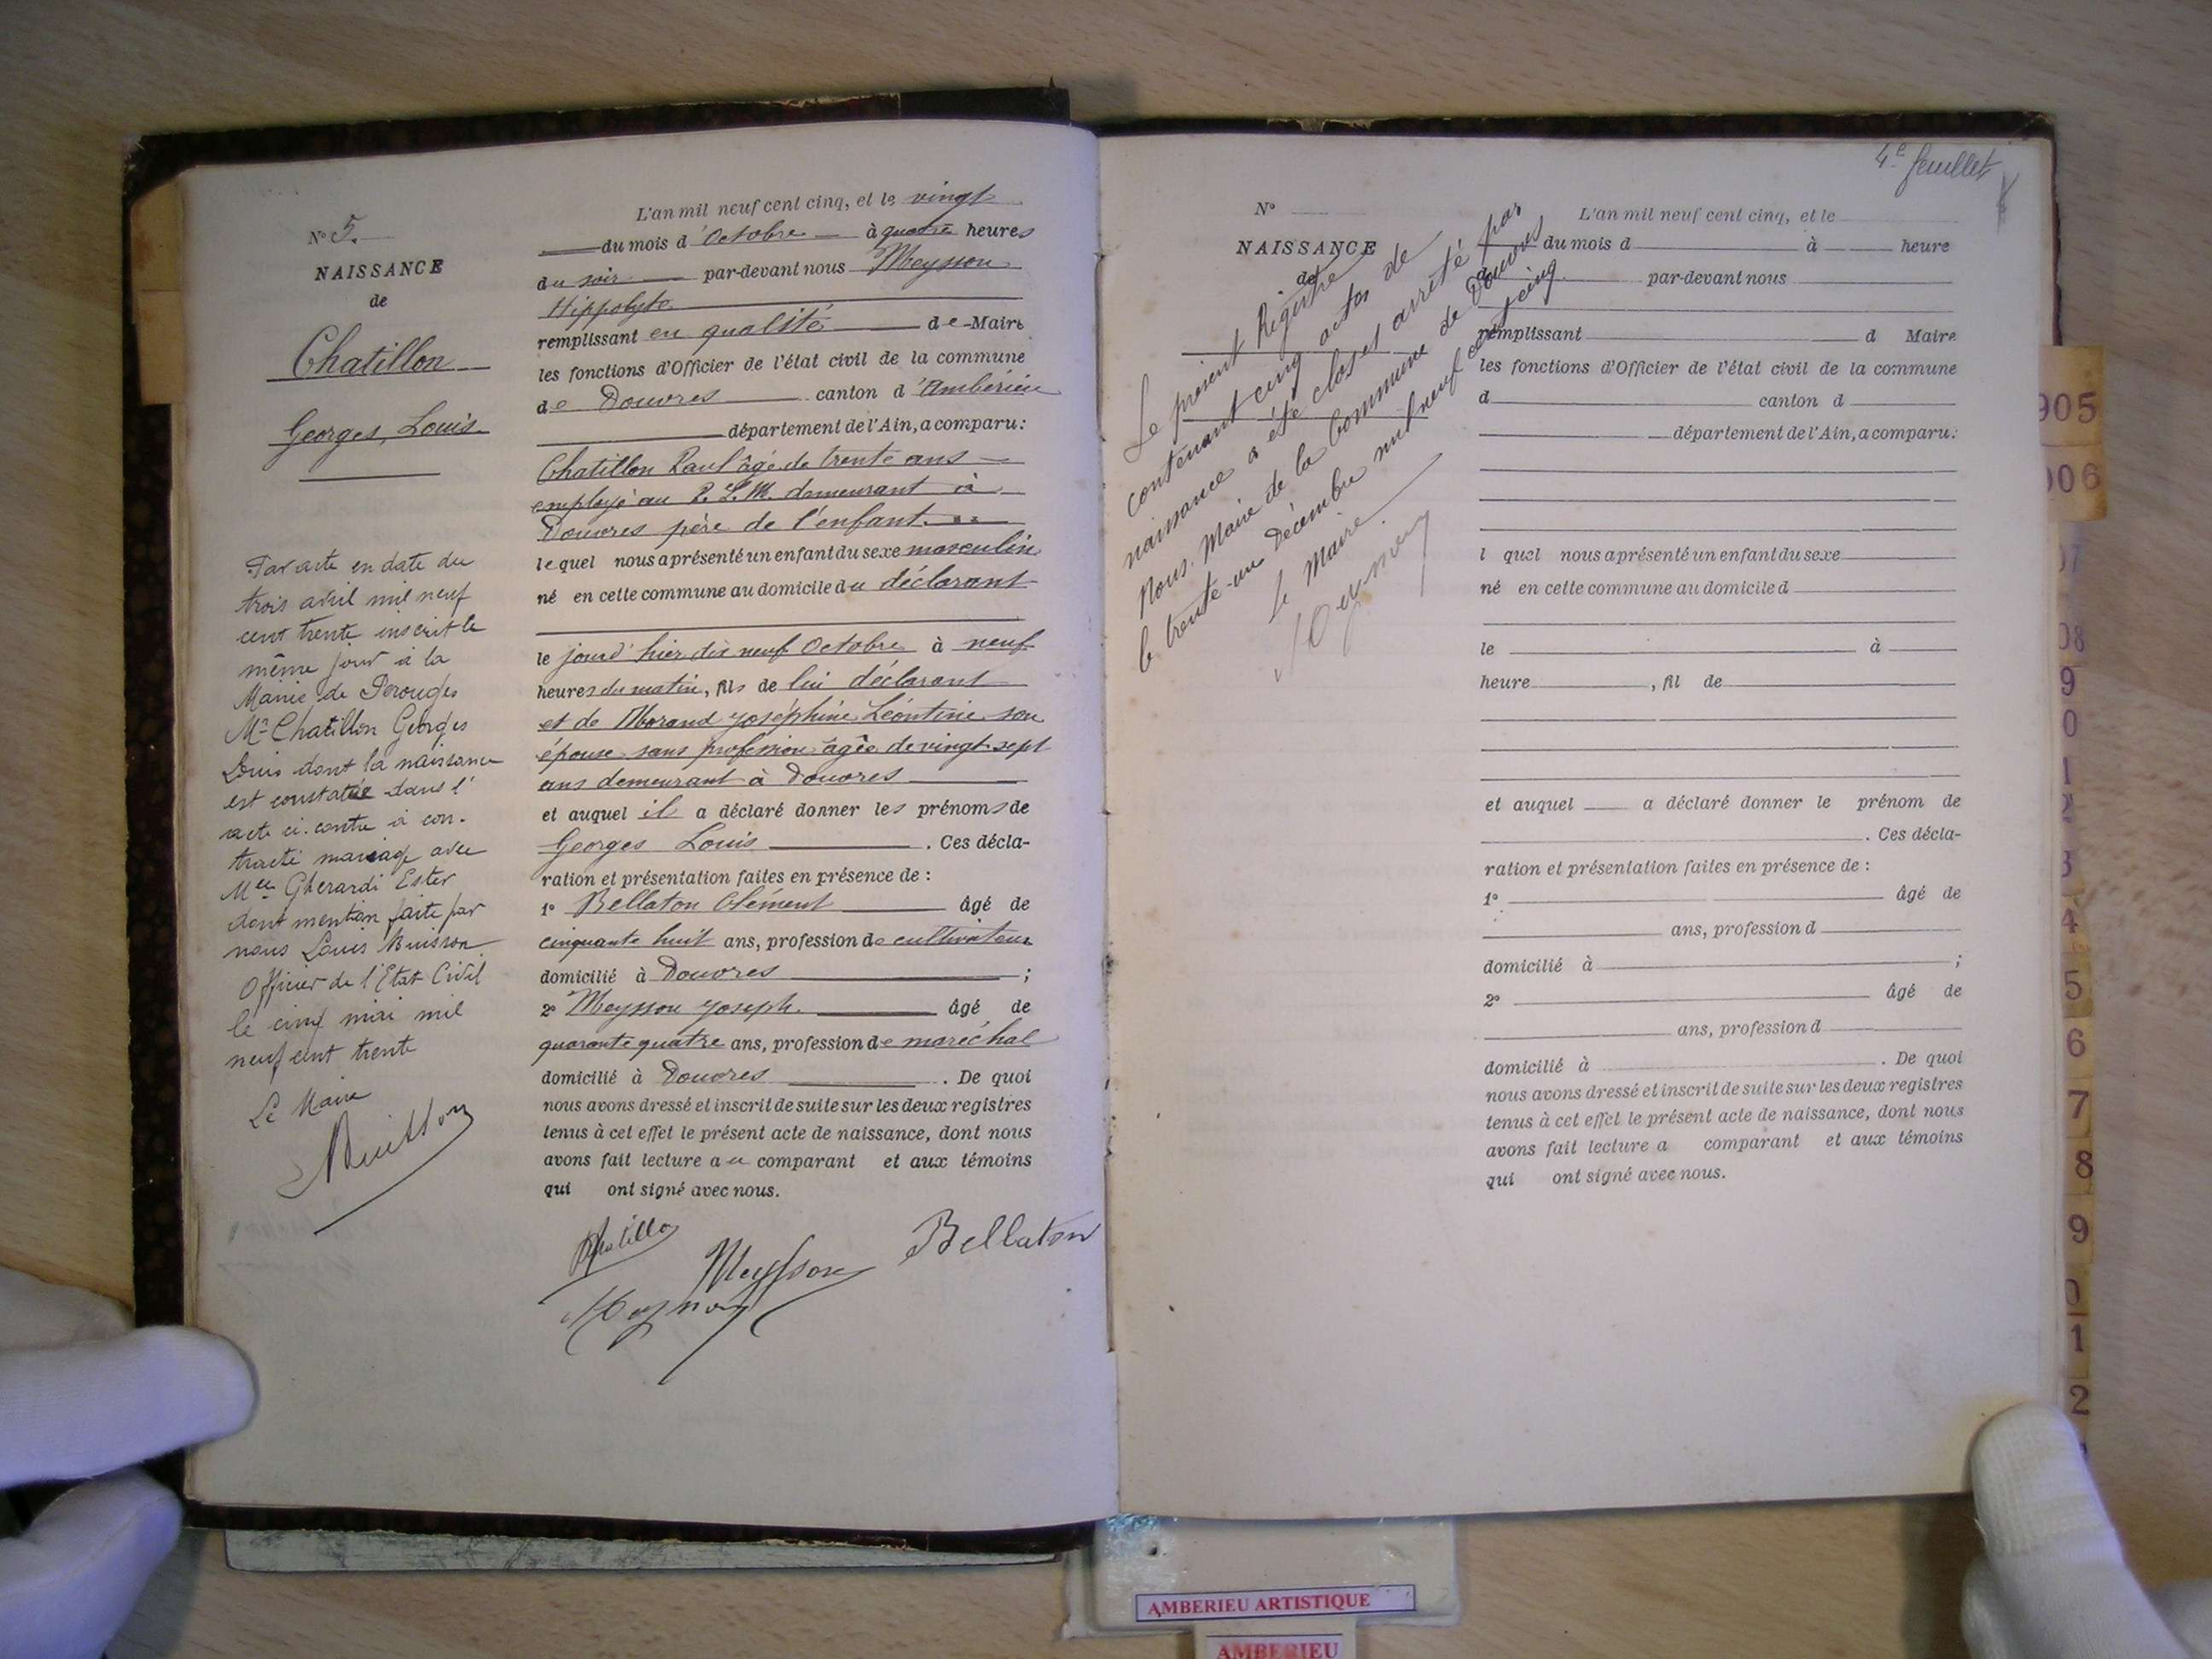 N° 5.
NAISSANCE
de
Chatillon
Georges, Louis
Par acte en date du
trois avril mil neuf
cent trente inscrit le
même jour à la
Mairie de Perouges
Mr Chatillon Georges
Louis dont la naissance
est constatée dans l'
acte ci-contre a con-
tracté mariage avec
Melle Gherardi Ester
dont mention faite par
nous Louis Buisson
Officier de l'Etat Civil
le cinq mai mil
neuf cent trente
Le Maire
Buisson
L'an mil neuf cent cinq, et le vingt
du mois d'Octobre à quatre heures
du soir par-devant nous Meysson
Hippolyte
remplissant en qualité de Maire
les fonctions d'Officier de l'état civil de la commune
de Douvres canton d'Ambérieu
département de l'Ain, a comparu:
Chatillon Paul âgé de trente ans
employé au P. L. M. demeurant à
Douvres père de l'enfant.
lequel nous a présenté un enfant du sexe masculin
né en cette commune au domicile du déclarant
le jourd'hier dix neuf Octobre à neuf
heures du matin, fils de lui déclarant
et de Morand Joséphine Léontine son
épouse sans profession âgée de vingt sept
ans demeurant à Douvres
et auquel il a déclaré donner les prénoms de
Georges Louis. Ces décla-
ration et présentation faites en présence de :
1° Bellaton Clément âgé de
cinquante huit ans, profession de cultivateur
domicilié à Douvres ;
2° Meysson Joseph. âgé de
quarante quatre ans, profession de maréchal
domicilié à Douvres. De quoi
nous avons dressé et inscrit de suite sur les deux registres
tenus à cet effet le présent acte de naissance, dont nous
avons fait lecture au comparant et aux témoins
qui ont signé avec nous.
Chatillon
Meysson
Bellaton
Meysson
4e feuillet
N°
NAISSANCE
de
Le présent Registre
contenant cinq actes de
naissance a été clos et arrêté par
Nous, Maire de la Commune de Douvres
le trente-un Décembre mil neuf cent cinq
Le Maire
Meysson
L'an mil neuf cent cinq, et le
du mois d à heure
d par-devant nous
remplissant d Maire
les fonctions d'Officier de l'état civil de la commune
d canton d
département de l'Ain, a comparu:
l quel nous a présenté un enfant du sexe
né en cette commune au domicile d
le à
heure , fil de
et auquel a déclaré donner le prénom de
. Ces décla-
ration et présentation faites en présence de :
1° âgé de
ans, profession d
domicilié à ;
2° âgé de
ans, profession d
domicilié à . De quoi
nous avons dressé et inscrit de suite sur les deux registres
tenus à cet effet le présent acte de naissance, dont nous
avons fait lecture a comparant et aux témoins
qui ont signé avec nous.
905
906
07
08
9
0
1
2
3
4
5
6
7
8
9
0
1
2
AMBERIEU ARTISTIQUE
AMBERIEU